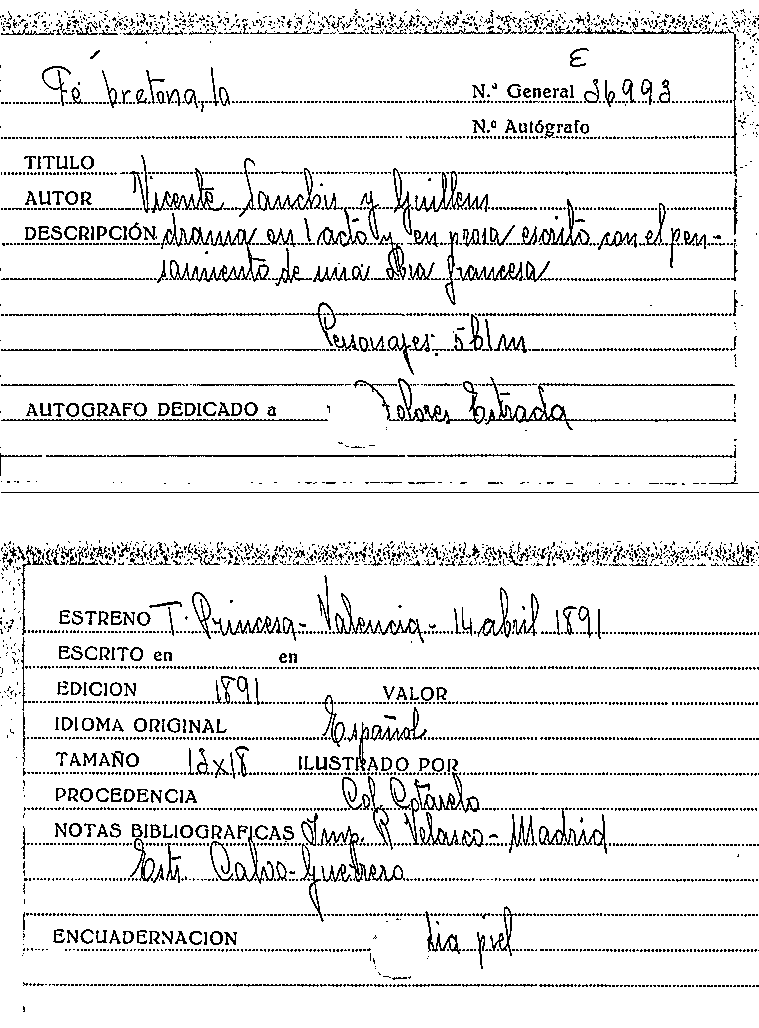 E
Fé bretona, la
N.º General 36993
N.º Autógrafo
TITULO
AUTOR Vicente Sanchis y Guillem
DESCRIPCIÓN drama en 1 acto y en prosa escrito con el pen-
samiento de una obra francesa
Personajes: 5 h 1 m
AUTOGRAFO DEDICADO a Dolores Estrada
ESTRENO T. Princesa - Valencia - 14 abril 1891
ESCRITO en en
EDICION 1891 VALOR
IDIOMA ORIGINAL Español
TAMAÑO 12x18 ILUSTRADO POR
PROCEDENCIA Col. Cotarelo
NOTAS BIBLIOGRAFICAS Imp. R Velasco - Madrid
Estr. Calvo-Guerrero
ENCUADERNACION piel